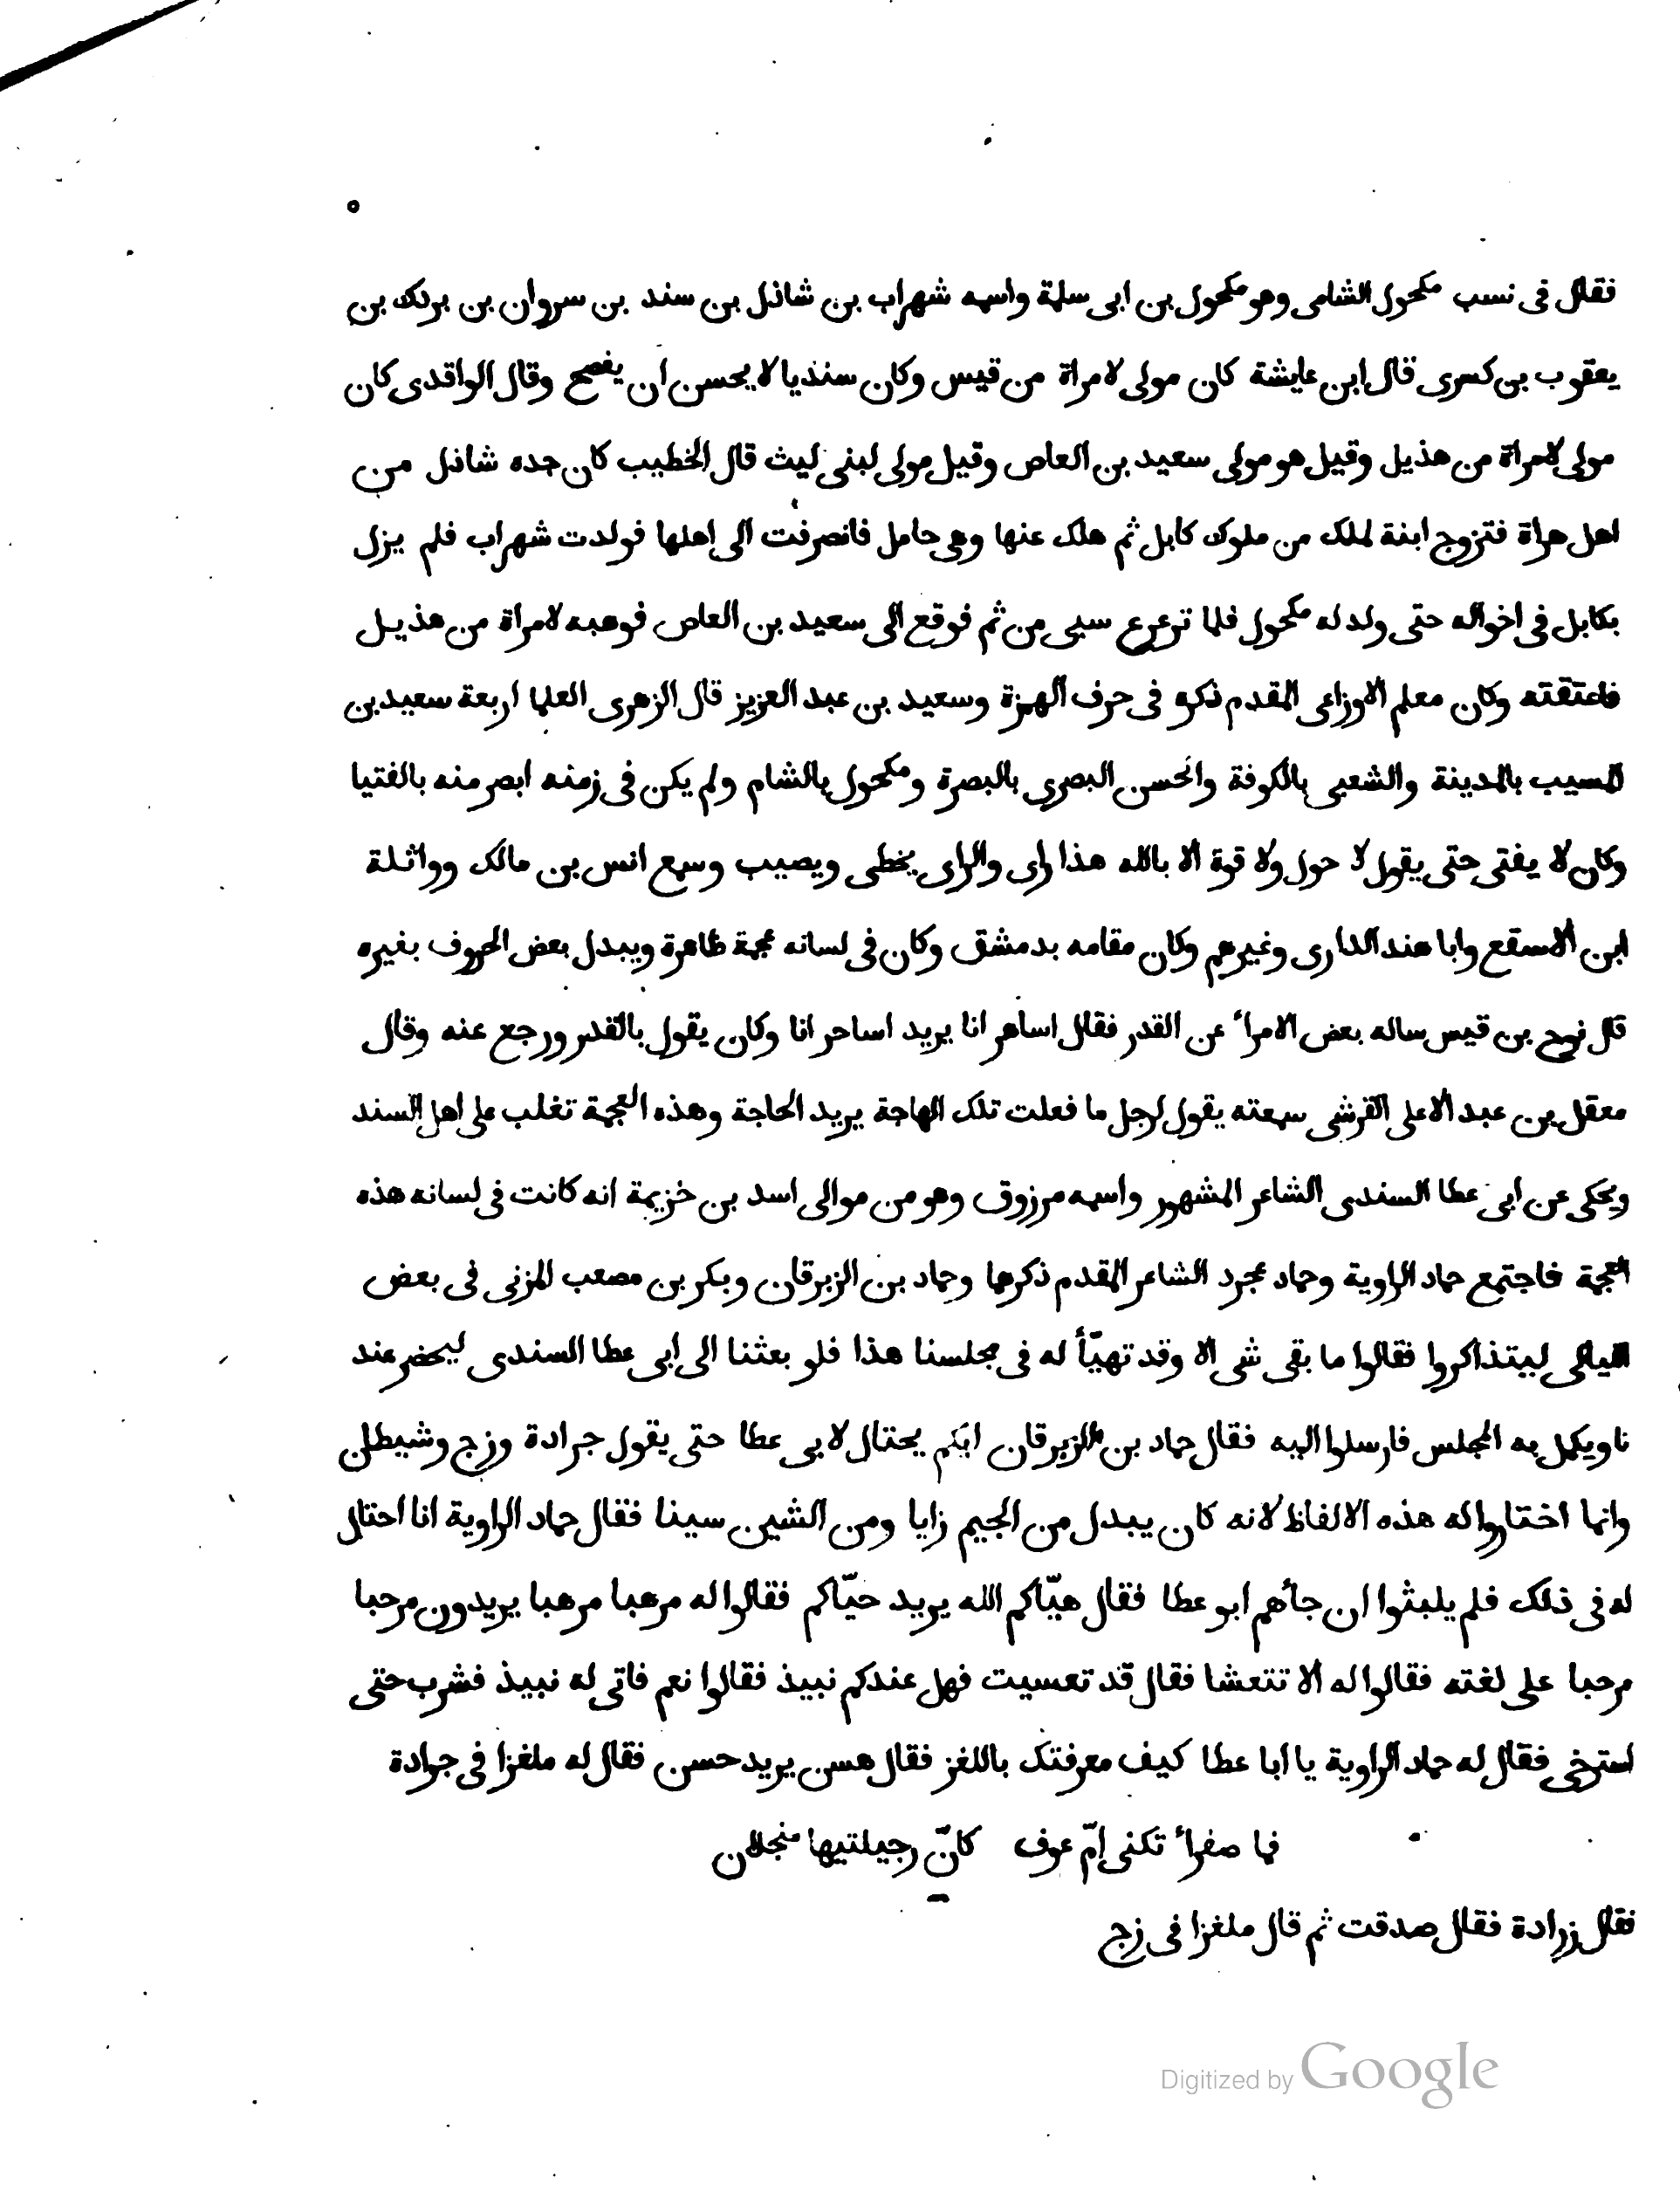 ٥
فقال فى نسب مكحول الشامى وهو مكحول بن ابى سلمة واسمه شهراب بن شاذل بن سند بن سروان بن بردك بن
يعقوب بن كسرى قال ابن عايشة كان مولى لامراة من قيس وكان سنديا لا يحسن ان يفصح وقال الواقدى كان
مولى لامراة من هذيل وقيل هو مولى سعيد بن العاص وقيل مولى لبنى ليث قال الخطيب كان جده شاذل من
اهل هراة فتزوج ابنة لملك من ملوك كابل ثم هلك عنها وهى حامل فانصرفت الى اهلها فولدت شهراب فلم يزل
بكابل فى اخواله حتى ولد له مكحول فلما ترعرع سبى من ثم فوقع الى سعيد بن العاص فوهبه لامراة من هذيل
فاعتقته وكان معلم الاوزاعى المقدم ذكره فى حرف الهمزة وسعيد بن عبد العزيز قال الزهرى العلما اربعة سعيد بن
المسيب بالمدينة والشعبى بالكوفة والحسن البصرى بالبصرة ومكحول بالشام ولم يكن فى زمنه ابصر منه بالفتيا
وكان لا يفتى حتى يقول لا حول ولا قوة الا بالله هذا راى والراى يخطى ويصيب وسمع انس بن مالك وواثلة
ابن الاسقع وابا هند الدارى وغيرهم وكان مقامه بدمشق وكان فى لسانه عجمة ظاهرة ويبدل بعض الحروف بغيره
قال نوح بن قيس ساله بعض الامراء عن القدر فقال اساهر انا يريد اساحر انا وكان يقول بالقدر ورجع عنه وقال
معقل بن عبد الاعلى القرشى سمعته يقول لرجل ما فعلت تلك الهاجة يريد الحاجة وهذه العجمة تغلب على اهل السند
ويحكى عن ابى عطا السندى الشاعر المشهور واسمه مرزوق وهو من موالى اسد بن خزيمة انه كانت فى لسانه هذه
العجمة فاجتمع حماد الراوية وحماد عجرد الشاعر المقدم ذكرهما وحماد بن الزبرقان وبكر بن مصعب المزنى فى بعض
الليالى ليتذاكروا فقالوا ما بقى شى الا وقد تهيّأ له فى مجلسنا هذا فلو بعثنا الى ابى عطا السندى ليحضر عند
نا ويكمل به المجلس فارسلوا اليه فقال حماد بن الزبرقان ايّكم يحتال لابى عطا حتى يقول جرادة وزج وشيطان
وانما اختاروا له هذه الالفاظ لانه كان يبدل من الجيم زايا ومن الشين سينا فقال حماد الراوية انا احتال
له فى ذلك فلم يلبثوا ان جاءهم ابو عطا فقال هيّاكم الله يريد حيّاكم فقالوا له مرهبا مرهبا يريدون مرحبا
مرحبا على لغته فقالوا له الا تتعشا فقال قد تعسيت فهل عندكم نبيذ فقالوا نعم فاتى له نبيذ فشرب حتى
استرخى فقال له حماد الراوية يا ابا عطا كيف معرفتك باللغز فقال هسن يريد حسن فقال له ملغزا فى جرادة
فما صفراء تكنى امّ عوف كانّ رجيلتيها منجلان
فقال زرادة فقال صدقت ثم قال ملغزا فى زج
Digitized by Google